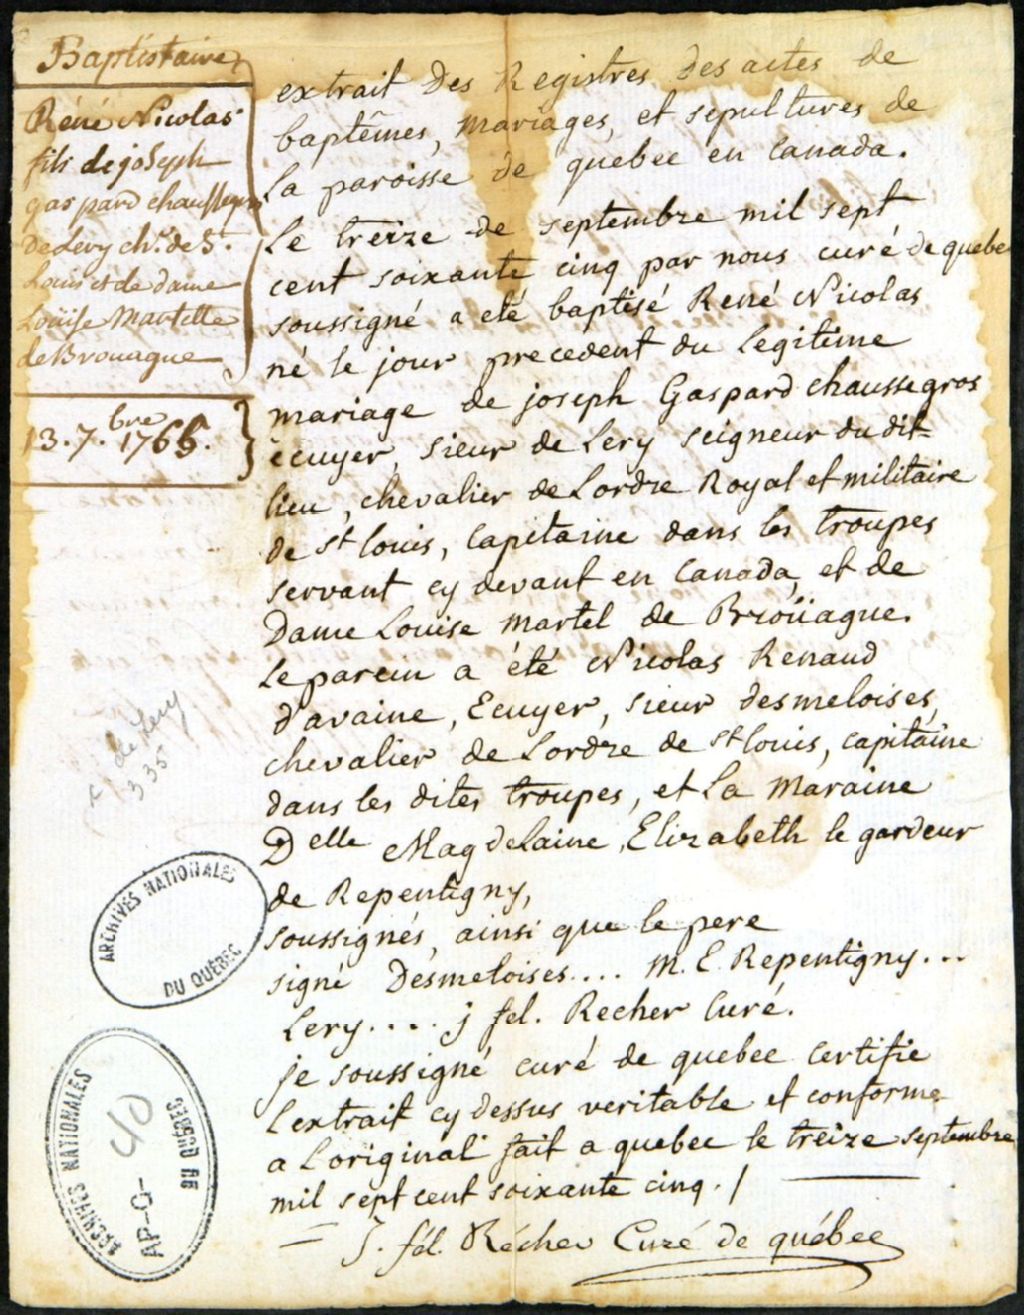 Baptistaire
René Nicolas
fils de joseph
gaspard chaussegros
de Lery ch.er de St.
Louis et de dame
Loüise Martelle
de Brouague
13. 7.bre 1765.
extrait des Registres des actes de
baptêmes, mariages, et sepultures de
la paroisse de quebec en Canada.
Le treize de septembre mil sept
cent soixante cinq par nous curé de quebec
soussigné a eté baptisé René Nicolas
né le jour precedent du legitime
mariage de joseph Gaspard chaussegros
ecuyer, sieur de Lery seigneur du dit
lieu, chevalier de Lordre Royal et militaire
de St louis, Capitaine dans les troupes
servant cy devant en Canada, et de
Dame Louise Martel de Broüague.
Le parein a été Nicolas Renaud
d'avaine, Ecuyer, sieur desmeloises,
chevalier de Lordre de St louis, capitaine
dans les dites troupes, et La Maraine
Delle Magdelaine, Elizabeth le gardeur
de Repentigny,
soussignés, ainsi que le pere
signé Desmeloises.... M. E. Repentigny...
Lery.... j fel. Recher Curé.
je soussigné curé de quebec certifie
Lextrait cy dessus veritable et conforme
a Loriginal fait a quebec le treize septembre
mil sept cent soixante cinq. /
J. fél. Récher Curé de québec
de Lery
335
ARCHIVES NATIONALES
DU QUÉBEC
ARCHIVES NATIONALES
AP-G- 40
DU QUÉBEC